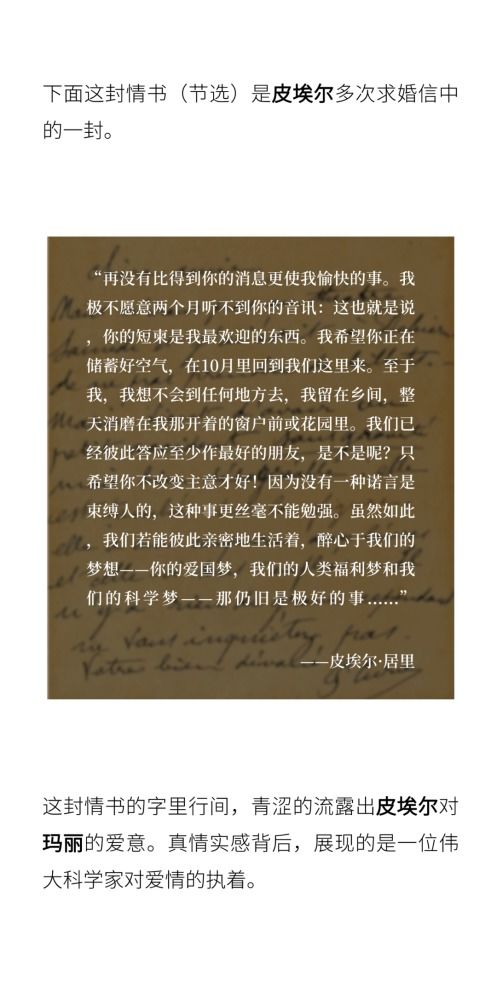 下面这封情书（节选）是皮埃尔多次求婚信中
的一封。
“再没有比得到你的消息更使我愉快的事。我
极不愿意两个月听不到你的音讯：这也就是说
，你的短柬是我最欢迎的东西。我希望你正在
储蓄好空气，在10月里回到我们这里来。至于
我，我想不会到任何地方去，我留在乡间，整
天消磨在我那开着的窗户前或花园里。我们已
经彼此答应至少作最好的朋友，是不是呢？只
希望你不改变主意才好！因为没有一种诺言是
束缚人的，这种事更丝毫不能勉强。虽然如此
，我们若能彼此亲密地生活着，醉心于我们的
梦想——你的爱国梦，我们的人类福利梦和我
们的科学梦——那仍旧是极好的事……”
ne sans inquiéter pas.
Votre bien dévoué
——皮埃尔·居里
这封情书的字里行间，青涩的流露出皮埃尔对
玛丽的爱意。真情实感背后，展现的是一位伟
大科学家对爱情的执着。